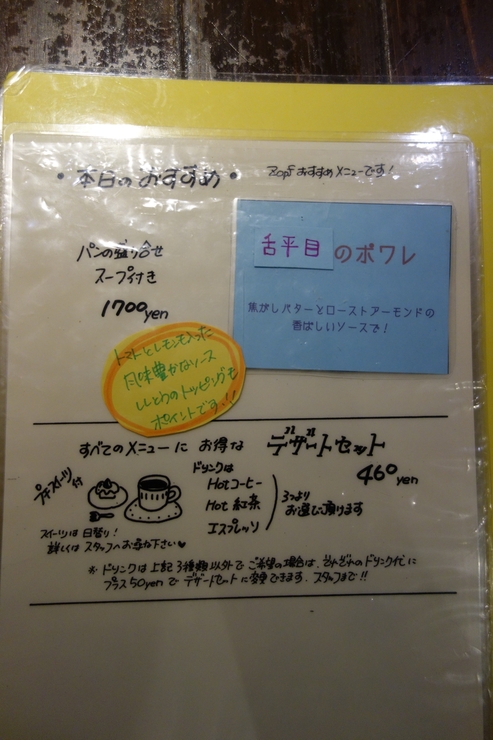 ・本日のおすすめ・
Zopfおすすめメニューです!
舌平目のポワレ
焦がしバターとローストアーモンドの
香ばしいソースで!
パンの盛り合せ
スープ付き
1700yen
トマトとレモンも入った
風味豊かなソース
ししとうのトッピングも
ポイントです!!
すべてのメニューに お得な デザートセット
460yen
プチスイーツ付
ドリンクは
Hotコーヒー
Hot 紅茶
エスプレッソ
3つより
お選び頂けます
スイーツは日替り!
詳しくはスタッフへお尋ね下さい♥
※ドリンクは上記3種類以外でご希望の場合は、それぞれのドリンク代に
プラス50yenでデザートセットに変更できます。スタッフまで!!